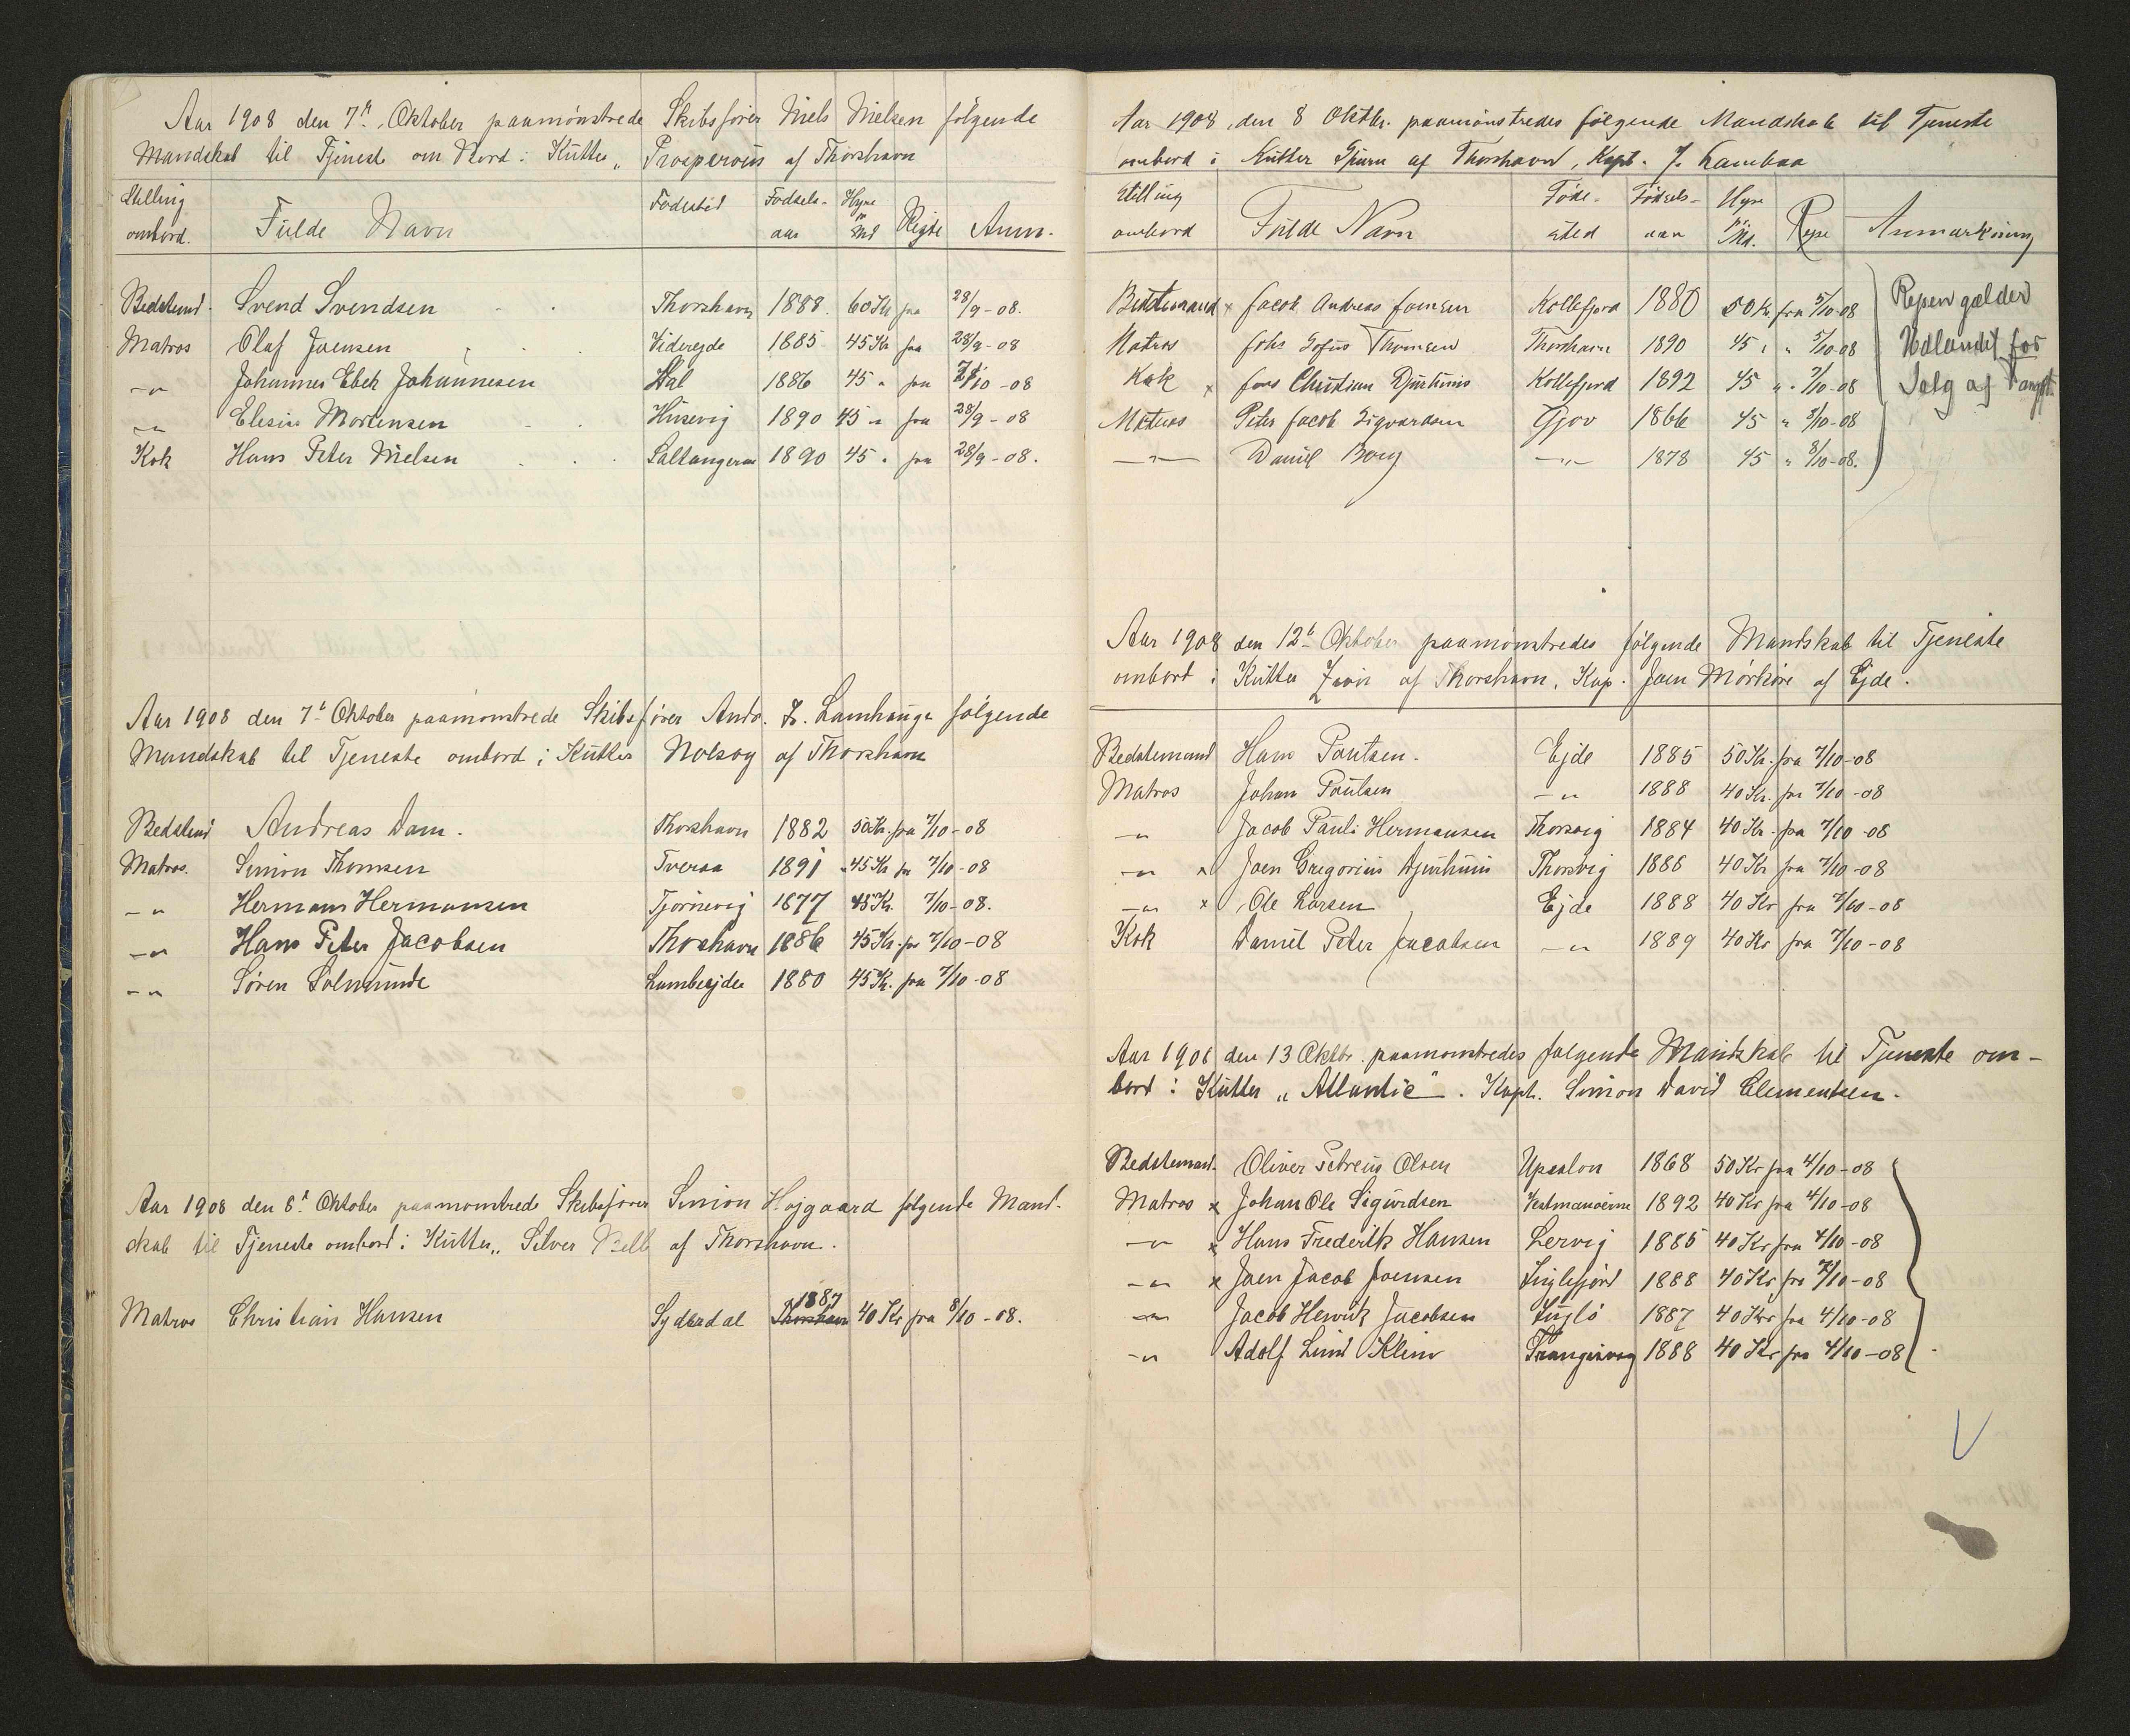 Aar 1908 den 7de Oktober paamönstrede Skibsförer Niels Nielsen fölgende
Mandskab til Tjeneste om Bord i Kutter „Prosperous af Thorshavn
Stilling ombord. Fulde Navn Fødested Fødsels-aar Hyre pr Md Rejse Anm.
Bedstemd. Svend Svendsen Thorshavn 1888. 60 Kr fra 28/9-08.
Matros Olaf Joensen Viderejde 1885 45 Kr fra 28/9-08
-"- Johannes Ebek Johannesen Hal 1886 45 " fra /10-08
-"- Elesius Mortensen Husevig 1890 45 " fra 28/9-08
Kok Hans Peter Nielsen Saltangerne 1890 45 " fra 28/9-08.
Aar 1908 den 7de Oktober paamönstrede Skibsförer Andr. Fr. Lamhauge fölgende
Mandskab til Tjeneste ombord i Kutter Nolsoy af Thorshavn
Bedstemd Andreas Dam. Thorshavn 1882 50 Kr. fra 7/10-08
Matros. Simon Thomsen Tveraa 1891 45 Kr fra 7/10-08
-"- Hermann Hermansen Tjörnevig 1877 45 Kr. 7/10-08.
-"- Hans Peter Jacobsen Thorshavn 1886 45 Kr. fra 7/10-08
-"- Sören Solmunde Lambejde 1880 45 Kr. fra 7/10-08
Aar 1908 den 8de Oktober paamönstrede Skibsförer Simon Højgaard følgende Mand-
skab til Tjeneste ombord i Kutter „Silver Bell af Thorshavn.
1887
Matros Christian Hansen Syderdal Thorshavn 40 Kr fra 8/10-08.
Aar 1908, den 8 Oktbr. paamönstredes fölgende Mandskab til Tjeneste
ombord i Kutter Spurn af Thorshavn, Kapt. J. Lambaa
Stilling ombord Fulde Navn Føde-sted Födsels-aar Hyre pr. Md. Rejse Anmærkning
Bedstemand x Jacob Andreas Joensen Kollefjord 1880 50 Kr. fra 5/10-08 Rejsen gælder
Matros Johs Sofus Thomsen Thorshavn 1890 45 " " 5/10-08 Udlandet for
Kok x Jens Christian Djurhuus Kollefjord 1892 45 " " 7/10-08 Salg af Fangst
Matros Peter Jacob Sigvardsen Gjov 1866 45 " 8/10-08
-"- Daniel Borg -"- 1878 45 " 8/10-08.
Aar 1908 den 12te Oktober paamönstredes fölgende Mandskab til Tjeneste
ombord i Kutter Zion af Thorshavn, Kap. Joen Mörköre af Ejde.
Bedstemand Hans Poulsen. Ejde 1885 50 Kr. fra 7/10-08
Matros Johan Poulsen -"- 1888 40 Kr. fra 7/10-08
-"- Jacob Pauli Hermansen Thorsvig 1884 40 Kr. fra 7/10-08
-"- x Joen Gregorius Djurhuus Thorsvig 1886 40 Kr fra 7/10-08
-"- x Ole Larsen Ejde 1888 40 Kr fra 7/10-08
Kok Daniel Peter Jacobsen -"- 1889 40 Kr fra 7/10-08
Aar 1908 den 13 Oktbr. paamönstredes følgende Mandskab til Tjeneste om-
bord i Kutter „Atlantic". Kapt. Simon David Clementsen.
Bedstemand. Oliver Petreus Olsen Upsalon 1868 50 Kr fra 4/10-08
Matros x Johan Ole Sigurdsen Vestmanoerne 1892 40 Kr fra 4/10-08
-"- x Hans Frederik Hansen Lervig 1885 40 Kr fra 4/10-08
-"- x Joen Jacob Joensen Fuglefjord 1888 40 Kr fra 7/10-08
-"- Jacob Henrik Jacobsen Fuglö 1887 40 Kr fra 4/10-08
-"- Adolf Lund Klein Trangisvaag 1888 40 Kr fra 4/10-08